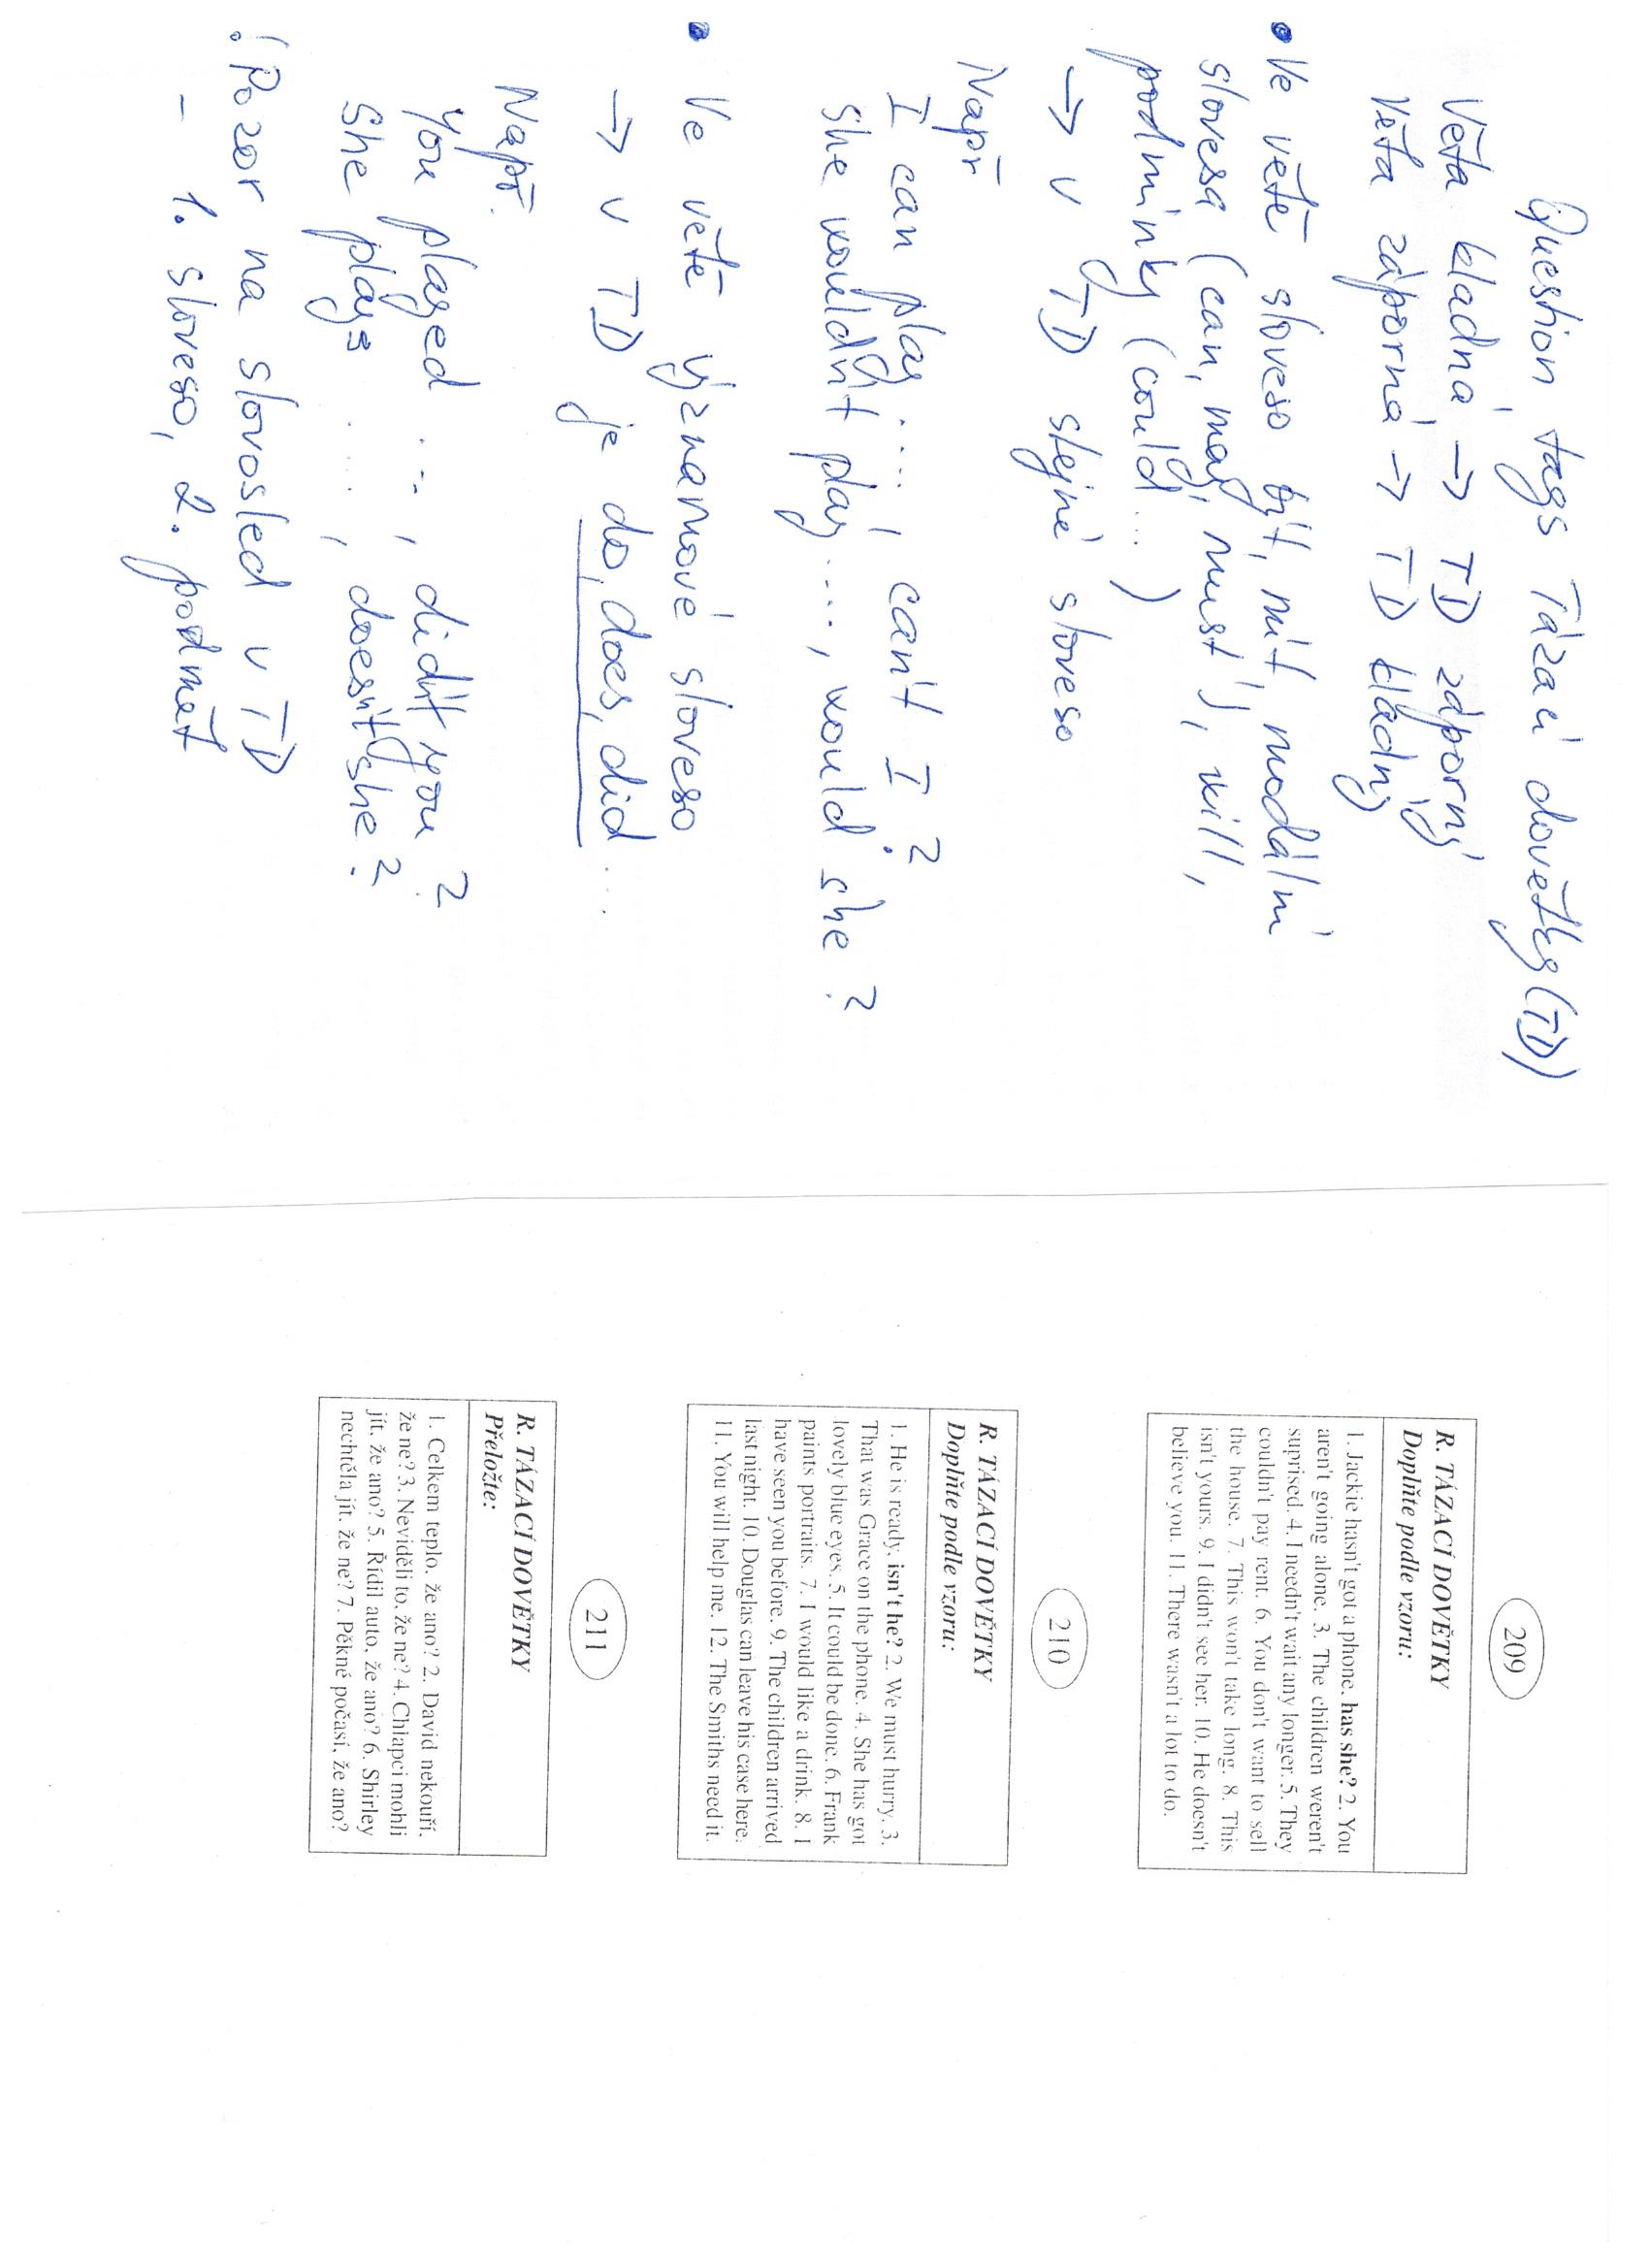 Question tags Tázací dovětky (TD)
Věta kladná → TD záporný
Věta záporná → TD kladný
• Ve větě sloveso být, mít, modální
slovesa (can, may, must), will,
podmínky (could...)
→ v TD stejné sloveso
Např
I can play ...., can't I?
She wouldn't play ...., would she?
• Ve větě významové sloveso
→ v TD je do, does, did...
Např.
You played ..., didn't you?
She plays ...., doesn't she?
! Pozor na slovosled v TD
– 1. sloveso, 2. podmět
209
R. TÁZACÍ DOVĚTKY
Doplňte podle vzoru:
1. Jackie hasn't got a phone, has she? 2. You
aren't going alone. 3. The children weren't
suprised. 4. I needn't wait any longer. 5. They
couldn't pay rent. 6. You don't want to sell
the house. 7. This won't take long. 8. This
isn't yours. 9. I didn't see her. 10. He doesn't
believe you. 11. There wasn't a lot to do.
210
R. TÁZACÍ DOVĚTKY
Doplňte podle vzoru:
1. He is ready, isn't he? 2. We must hurry. 3.
That was Grace on the phone. 4. She has got
lovely blue eyes. 5. It could be done. 6. Frank
paints portraits. 7. I would like a drink. 8. I
have seen you before. 9. The children arrived
last night. 10. Douglas can leave his case here.
11. You will help me. 12. The Smiths need it.
211
R. TÁZACÍ DOVĚTKY
Přeložte:
1. Celkem teplo, že ano? 2. David nekouří,
že ne? 3. Neviděli to, že ne? 4. Chlapci mohli
jít, že ano? 5. Řídil auto, že ano? 6. Shirley
nechtěla jít, že ne? 7. Pěkné počasí, že ano?